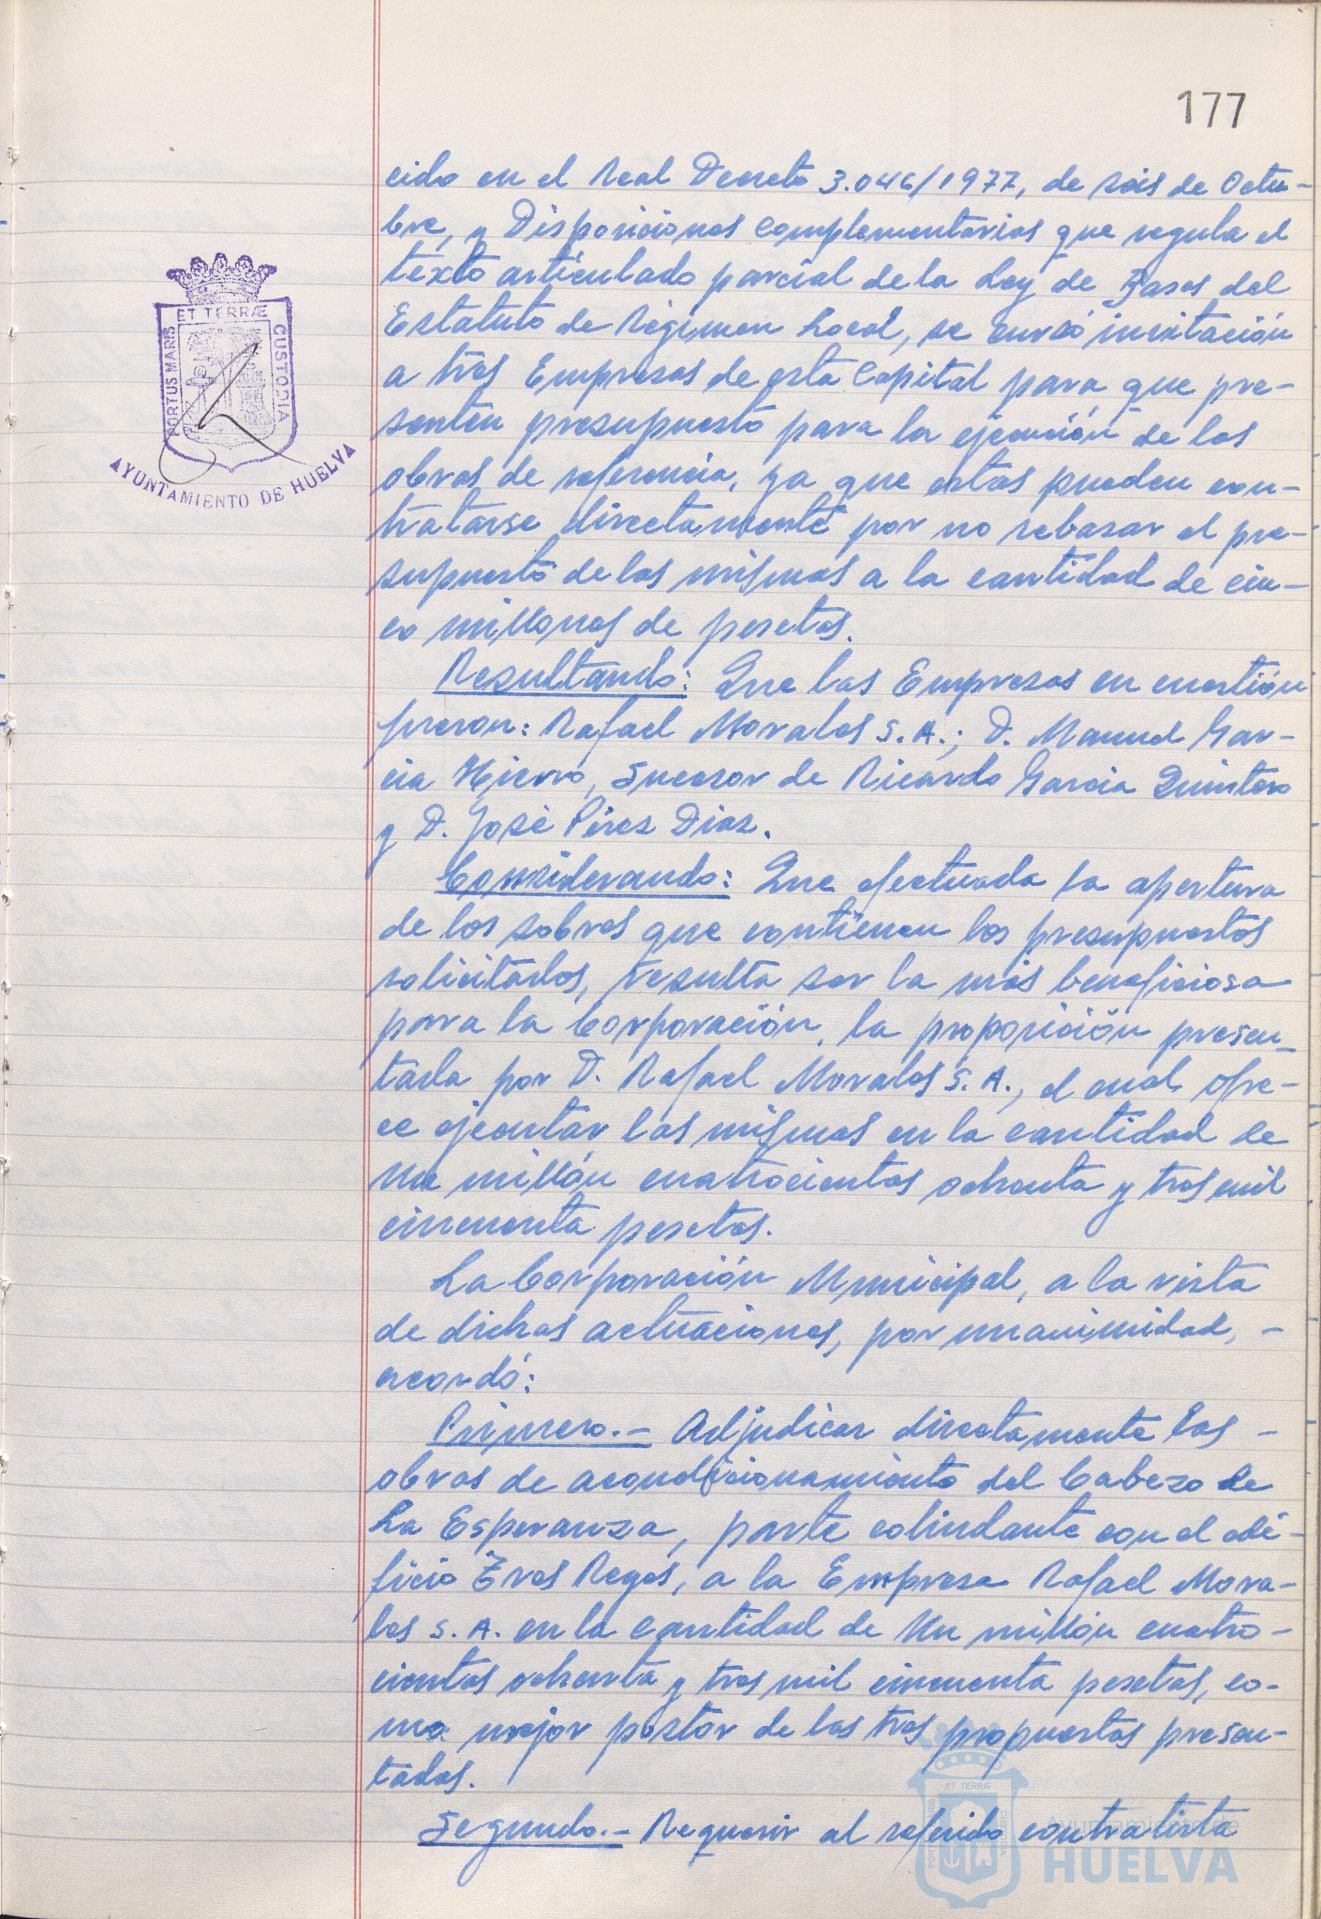 177
cido en el Real Decreto 3.046/1977, de seis de Octu-
bre, y Disposiciones complementarias que regula el
texto articulado parcial de la Ley de Bases del
Estatuto de Régimen Local, se cursó invitación
a tres Empresas de esta Capital para que pre-
senten presupuesto para la ejecución de las
obras de referencia, ya que estas pueden con-
tratarse directamente por no rebasar el pre-
supuesto de las mismas a la cantidad de cin-
co millones de pesetas.
Resultando: Que las Empresas en cuestión
fueron: Rafael Morales S.A.; D. Manuel Gar-
cia Hierro, Sucesor de Ricardo Garcia Quintero
y D. José Pérez Diaz.
Considerando: Que efectuada la apertura
de los sobres que contienen los presupuestos
solicitados, resulta ser la más beneficiosa
para la Corporación, la proposición presen-
tada por D. Rafael Morales S.A., el cual ofre-
ce ejecutar las mismas en la cantidad de
Un millón cuatrocientas ochenta y tres mil
cincuenta pesetas.
La Corporación Municipal, a la vista
de dichas actuaciones, por unanimidad, -
acordó:
Primero.- Adjudicar directamente las -
obras de acondicionamiento del Cabezo de
La Esperanza, parte colindante con el edi-
ficio Tres Reyes, a la Empresa Rafael Mora-
les S.A. en la cantidad de Un millón cuatro-
cientas ochenta y tres mil cincuenta pesetas, co-
mo mejor postor de las tres propuestas presen-
tadas.
Segundo.- Requerir al referido contratista
PORTUS MARIS ET TERRÆ CUSTODIA
AYUNTAMIENTO DE HUELVA
Ayuntamiento de
HUELVA